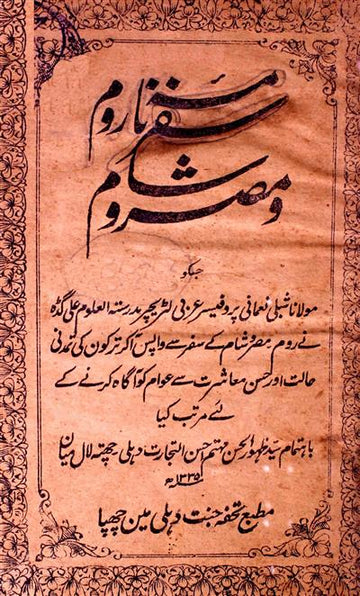 سفر نامہ روم
و مصر و شام
جسکو
مولانا شبلی نعمانی پروفیسر عربی لٹریچر مدرستہ العلوم علی گڈہ
نے روم مصر و شام کے سفر سے واپس آکر ترکون کی تمدنی
حالت اور حسن معاشرت سے عوام کو آگاہ کرنے کے
لئے مرتب کیا
باہتمام سید ظہور الحسن مہتمم احسن التجارت دہلی چھتہ لال میان
۱۳۳۵ھ
مطبع تحفہ جنت دہلی مین چھپا